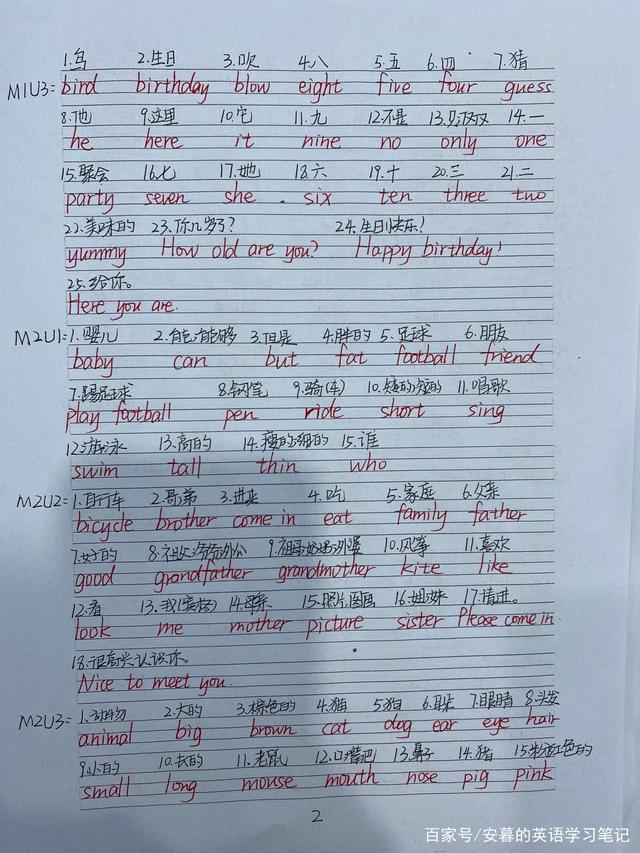 1.鸟 2.生日 3.吹 4.八 5.五 6.四 7.猜
M1U3= bird birthday blow eight five four guess
8.他 9.这里 10.它 11.九 12.不是 13.只,仅仅 14.一
he here it nine no only one
15.聚会 16.七 17.她 18.六 19.十 20.三 21.二
party seven she six ten three two
22.美味的 23.你几岁了? 24.生日快乐!
yummy How old are you? Happy birthday!
25.给你。
Here you are.
M2U1= 1.婴儿 2.能,能够 3.但是 4.胖的 5.足球 6.朋友
baby can but fat football friend
7.踢足球 8.钢笔 9.骑(车) 10.矮的,短的 11.唱歌
play football pen ride short sing
12.游泳 13.高的 14.瘦的,细的 15.谁
swim tall thin who
M2U2= 1.自行车 2.哥弟 3.进来 4.吃 5.家庭 6.父亲
bicycle brother come in eat family father
7.好的 8.祖父,爷爷,外公 9.祖母,奶奶,外婆 10.风筝 11.喜欢
good grandfather grandmother kite like
12.看 13.我(宾格) 14.母亲 15.照片,图画 16.姐妹 17.请进。
look me mother picture sister Please come in.
18.很高兴认识你。
Nice to meet you.
M2U3= 1.动物 2.大的 3.棕色的 4.猫 5.狗 6.耳朵 7.眼睛 8.头发
animal big brown cat dog ear eye hair
9.小的 10.长的 11.老鼠 12.口,嘴巴 13.鼻子 14.猪 15.粉红色的
small long mouse mouth nose pig pink
2
百家号/安暮的英语学习笔记